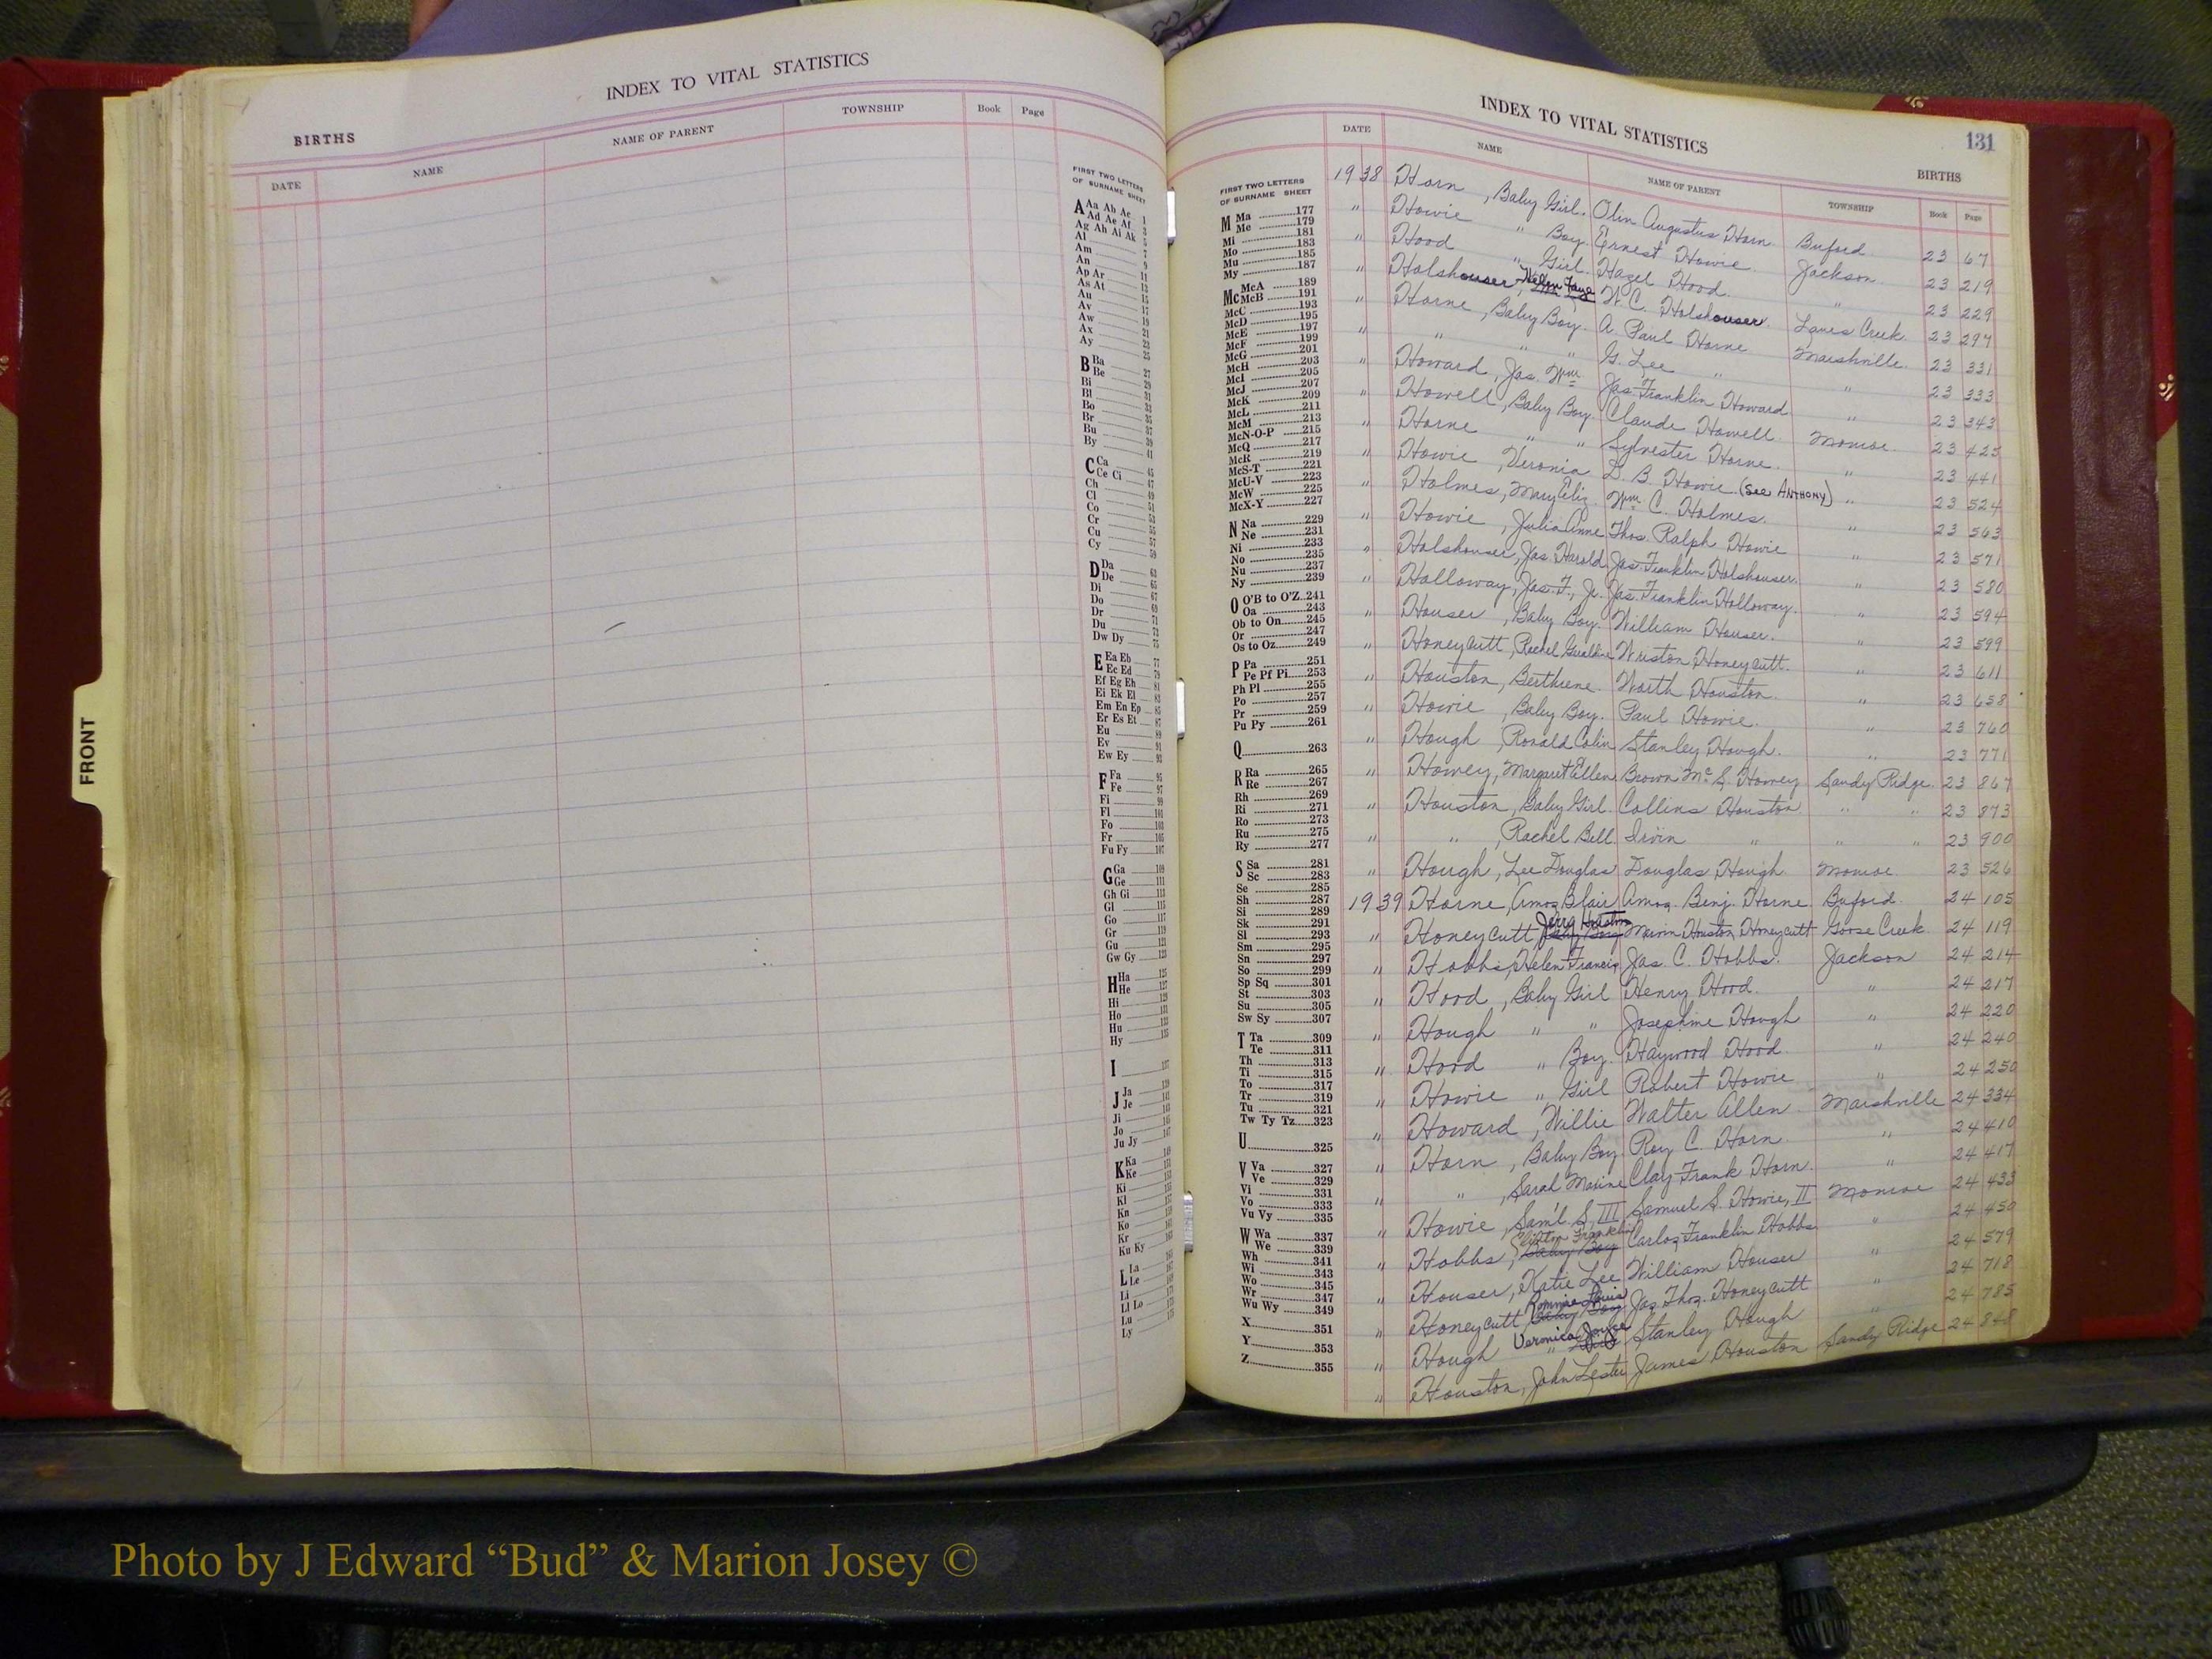 INDEX TO VITAL STATISTICS
BIRTHS
DATE NAME NAME OF PARENT TOWNSHIP Book Page
FIRST TWO LETTERS
OF SURNAME SHEET
A Aa Ab Ac 1
Ad Ae Af 3
Ag Ah Ai Ak 5
Al 7
Am 9
An 11
Ap Ar 13
As At 15
Au
Av 19
Aw 21
Ax 23
Ay 25
B Ba 27
Be 29
Bi
Bl
Bo
Br 37
Bu 39
By 41
C Ca 45
Ce Ci 47
Ch 49
Cl 51
Co 53
Cr 55
Cu 57
Cy 59
D Da 63
De 65
Di 67
Do 69
Dr 71
Du 73
Dw Dy 75
E Ea Eb 77
Ec Ed 79
Ef Eg Eh 81
Ei Ek El 83
Em En Ep 85
Er Es Et 87
Eu 89
Ev 91
Ew Ey 93
F Fa 95
Fe 97
Fi 99
Fl 101
Fo 103
Fr 105
Fu Fy 107
G Ga 109
Ge 111
Gh Gi 113
Gl 115
Go 117
Gr 119
Gu 121
Gw Gy 123
H Ha 125
He 127
Hi 129
Ho 131
Hu 133
Hy 135
I 137
J Ja 139
Je 141
Ji
Jo
Ju Jy 147
K Ka 149
Ke
Ki
Kl
Kn
Ko
Kr
Ku Ky
L La
Le
Li
Ll Lo
Lu
Ly
FRONT
INDEX TO VITAL STATISTICS 131
BIRTHS
DATE NAME NAME OF PARENT TOWNSHIP Book Page
FIRST TWO LETTERS
OF SURNAME SHEET
M Ma 177
Me 179
Mi 181
Mo 183
Mu 185
My 187
Mc McA 189
McB 191
McC 193
McD 195
McE 197
McF 199
McG 201
McH 203
McI 205
McJ 207
McK 209
McL 211
McM 213
McN-O-P 215
McQ 217
McR 219
McS-T 221
McU-V 223
McW 225
McX-Y 227
N Na 229
Ne 231
Ni 233
No 235
Nu 237
Ny 239
O O'B to O'Z 241
Oa 243
Ob to On 245
Or 247
Os to Oz 249
P Pa 251
Pe Pf Pi 253
Ph Pl 255
Po 257
Pr 259
Pu Py 261
Q 263
R Ra 265
Re 267
Rh 269
Ri 271
Ro 273
Ru 275
Ry 277
S Sa 281
Sc 283
Se 285
Sh 287
Si 289
Sk 291
Sl 293
Sm 295
Sn 297
So 299
Sp Sq 301
St 303
Su 305
Sw Sy 307
T Ta 309
Te 311
Th 313
Ti 315
To 317
Tr 319
Tu 321
Tw Ty Tz 323
U 325
V Va 327
Ve 329
Vi 331
Vo 333
Vu Vy 335
W Wa 337
We 339
Wh 341
Wi 343
Wo 345
Wr 347
Wu Wy 349
X 351
Y 353
Z 355
1938 Horn, Baby Girl. Olin Augustus Horn Buford 23 67
" Howie " Boy. Ernest Howie Jackson 23 219
" Hood " Girl. Hazel Hood " 23 229
" Holshouser, Helen Faye W. C. Holshouser. Lanes Creek 23 297
" Horne, Baby Boy. A. Paul Horne Marshville 23 331
" " " " G. Lee " " 23 333
" Howard, Jas. Wm. Jas. Franklin Howard " 23 343
" Howell, Baby Boy. Claude Howell. Monroe 23 425
" Horne " " Sylvester Horne. " 23 441
" Howie, Veronia L. B. Howie (See ANTHONY) " 23 524
" Holmes, Mary Eliz. Wm. C. Holmes. " 23 563
" Howie, Julia Anne Thos. Ralph Howie " 23 571
" Holshouser, Jas. Harold Jas. Franklin Holshouser. " 23 580
" Holloway, Jas. F., Jr. Jas. Franklin Holloway. " 23 594
" Houser, Baby Boy. William Houser. " 23 599
" Honeycutt, Rachel Geraldine Wriston Honeycutt. " 23 611
" Houston, Berthene. Worth Houston. " 23 658
" Howie, Baby Boy. Paul Howie. " 23 760
" Hough, Ronald Colin Stanley Hough. " 23 771
" Howey, Margaret Ellen Brown Mc S. Howey Sandy Ridge 23 867
" Houston, Baby Girl. Collins Houston " " 23 873
" " , Rachel Bell Irvin " " " 23 900
" Hough, Lee Douglas Douglas Hough Monroe 23 526
1939 Horne, Amos Blair Amos Benj. Horne Buford. 24 105
" Honeycutt Jerry Houston Baby Boy Marvin Houston Honeycutt Goose Creek 24 119
" Hobbs, Helen Francis Jas. C. Hobbs. Jackson 24 214
" Hood, Baby Girl Henry Hood. " 24 217
" Hough " " Josephine Hough " 24 220
" Hood " Boy. Haywood Hood. " 24 240
" Howie " Girl Robert Howie " 24 250
" Howard, Willie Walter Allen Marshville 24 334
" Horn, Baby Boy Roy C. Horn. " 24 410
" " , Sarah Maxine Clay Frank Horn. " 24 417
" Howie, Sam'l S. III Samuel S. Howie, II Monroe 24 433
" Hobbs, Franklin Baby Boy Carlos Franklin Hobbs " 24 450
" Houser, Katie Lee William Houser " 24 579
" Honeycutt, Ronnie Louis Baby Boy Jas. Thos. Honeycutt " 24 718
" Hough Veronica Joyce " Stanley Hough " 24 785
" Houston, John Lester James Houston Sandy Ridge 24 848
Photo by J Edward “Bud” & Marion Josey ©